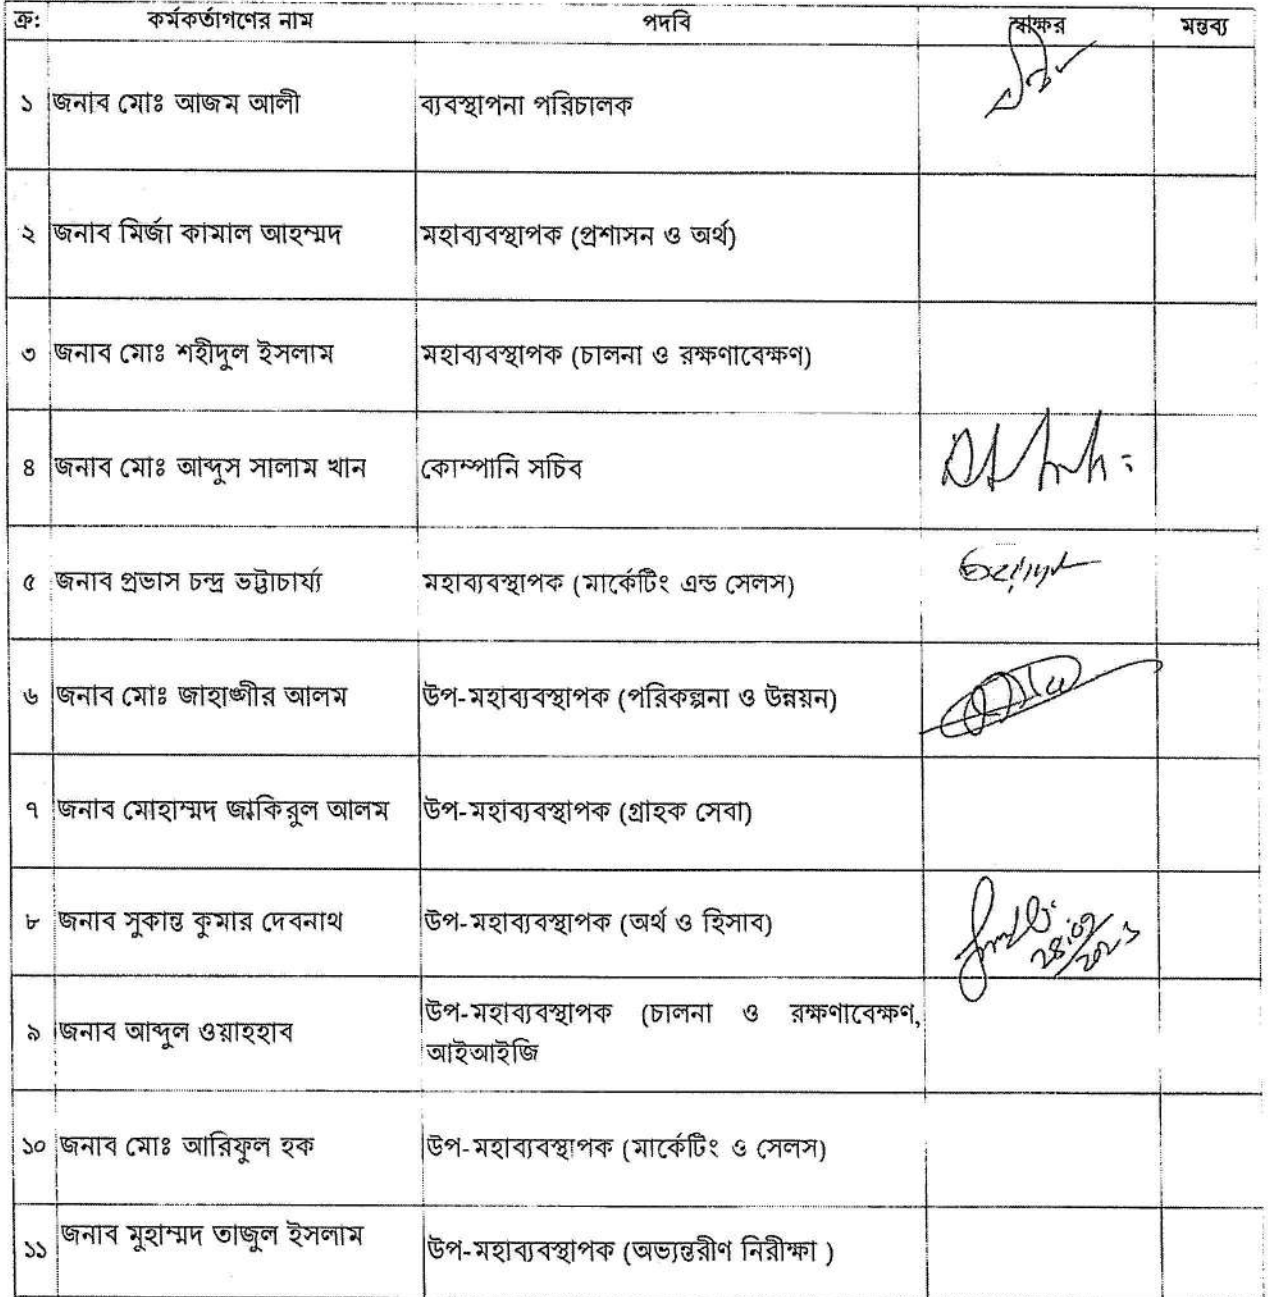 ক্র: কর্মকর্তাগণের নাম পদবি স্বাক্ষর মন্তব্য
১ জনাব মোঃ আজম আলী ব্যবস্থাপনা পরিচালক
২ জনাব মির্জা কামাল আহম্মদ মহাব্যবস্থাপক (প্রশাসন ও অর্থ)
৩ জনাব মোঃ শহীদুল ইসলাম মহাব্যবস্থাপক (চালনা ও রক্ষণাবেক্ষণ)
৪ জনাব মোঃ আব্দুস সালাম খান কোম্পানি সচিব
৫ জনাব প্রভাস চন্দ্র ভট্টাচার্য্য মহাব্যবস্থাপক (মার্কেটিং এন্ড সেলস)
৬ জনাব মোঃ জাহাঙ্গীর আলম উপ-মহাব্যবস্থাপক (পরিকল্পনা ও উন্নয়ন)
৭ জনাব মোহাম্মদ জাকিরুল আলম উপ-মহাব্যবস্থাপক (গ্রাহক সেবা)
৮ জনাব সুকান্ত কুমার দেবনাথ উপ-মহাব্যবস্থাপক (অর্থ ও হিসাব)
৯ জনাব আব্দুল ওয়াহহাব উপ-মহাব্যবস্থাপক (চালনা ও রক্ষণাবেক্ষণ,
আইআইজি
১০ জনাব মোঃ আরিফুল হক উপ-মহাব্যবস্থাপক (মার্কেটিং ও সেলস)
১১ জনাব মুহাম্মদ তাজুল ইসলাম উপ-মহাব্যবস্থাপক (অভ্যন্তরীণ নিরীক্ষা )